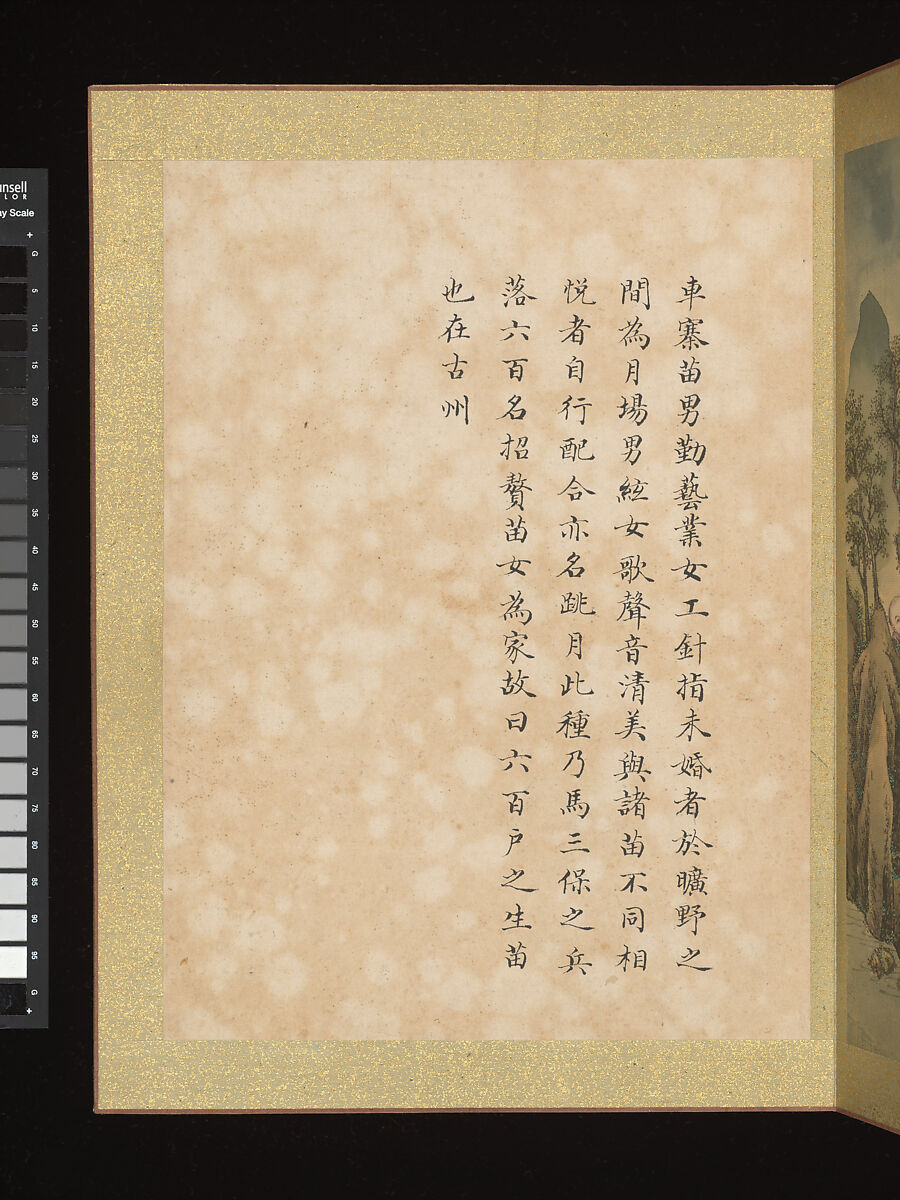 車寨苗男勤藝業女工針指未婚者於曠野之
間為月場男絃女歌聲音清美與諸苗不同相
悅者自行配合亦名跳月此種乃馬三保之兵
落六百名招贅苗女為家故曰六百戶之生苗
也在古州
unsell
LOR
ay Scale
+
G
5
10
15
20
25
30
35
40
45
50
55
60
65
70
75
80
85
90
95
G
+